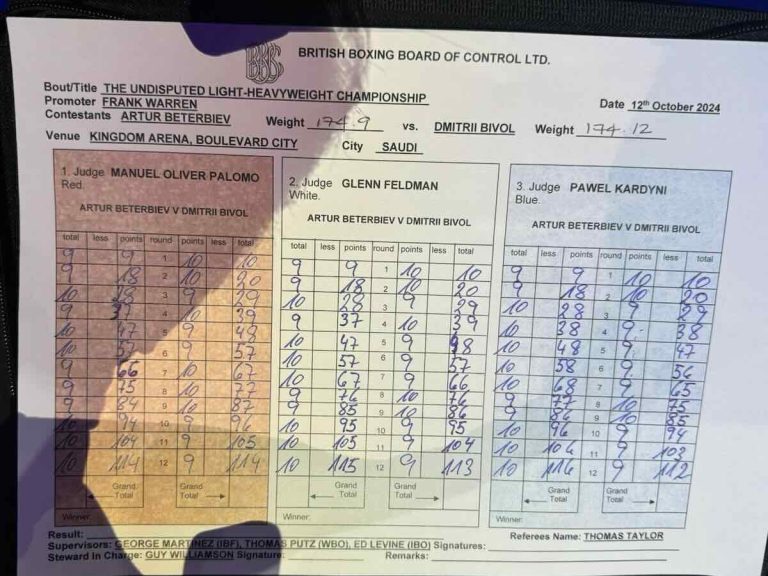 BRITISH BOXING BOARD OF CONTROL LTD.
Bout/Title THE UNDISPUTED LIGHT-HEAVYWEIGHT CHAMPIONSHIP
Promoter FRANK WARREN Date 12th October 2024
Contestants ARTUR BETERBIEV Weight 174.9 vs. DMITRII BIVOL Weight 174.12
Venue KINGDOM ARENA, BOULEVARD CITY City SAUDI
1. Judge MANUEL OLIVER PALOMO
Red.
ARTUR BETERBIEV V DMITRII BIVOL
total less points round points less total
9 9 1 10 10
9 18 2 10 20
10 28 3 9 29
9 37 4 10 39
10 47 5 9 48
10 57 6 9 57
9 66 7 10 67
9 75 8 10 77
9 84 9 10 87
10 94 10 9 96
10 104 11 9 105
10 114 12 9 114
Grand Total Grand Total
Winner:
2. Judge GLENN FELDMAN
White.
ARTUR BETERBIEV V DMITRII BIVOL
total less points round points less total
9 9 1 10 10
9 18 2 10 20
10 28 3 9 29
9 37 4 10 39
10 47 5 9 48
10 57 6 9 57
10 67 7 9 66
9 76 8 10 76
9 85 9 10 86
10 95 10 9 95
10 105 11 9 104
10 115 12 9 113
Grand Total Grand Total
Winner:
3. Judge PAWEL KARDYNI
Blue.
ARTUR BETERBIEV V DMITRII BIVOL
total less points round points less total
9 9 1 10 10
9 18 2 10 20
10 28 3 9 29
10 38 4 9 38
10 48 5 9 47
10 58 6 9 56
10 68 7 9 65
9 77 8 10 75
9 86 9 10 85
10 96 10 9 94
10 106 11 9 103
10 116 12 9 112
Grand Total Grand Total
Winner:
Result: Referees Name: THOMAS TAYLOR
Supervisors: GEORGE MARTINEZ (IBF), THOMAS PUTZ (WBO), ED LEVINE (IBO) Signatures:
Steward in Charge: GUY WILLIAMSON Signature: Remarks: